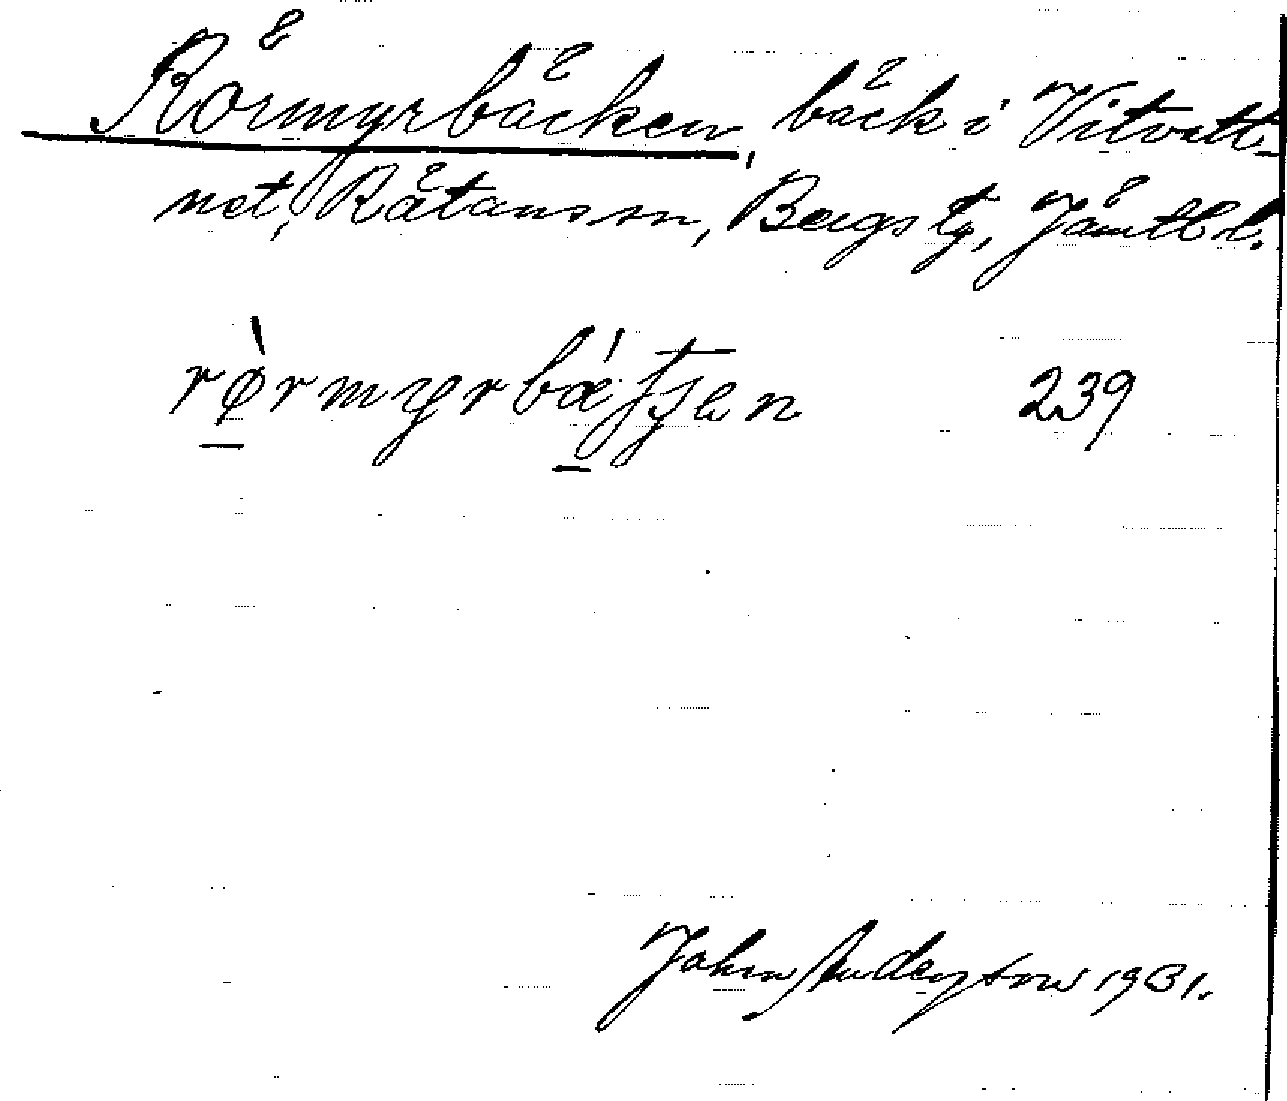 Rörmyrbäcken, bäck i Vitvatt-
net, Rätans sn, Bergs tg, Jämtl. l.
rø̀rmyrbǽtʃen 239
John Anderston 1931.